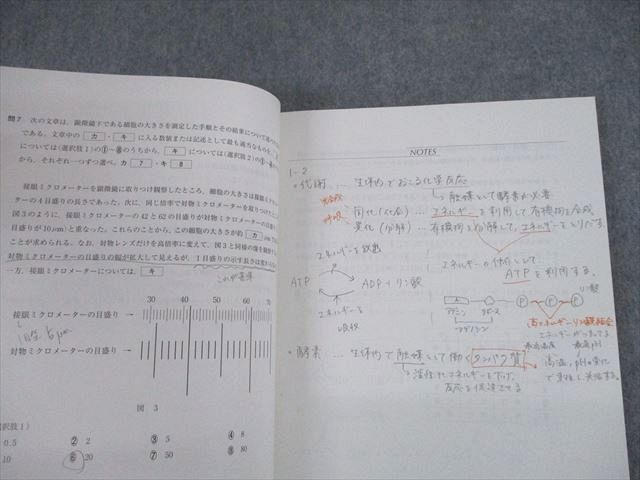 問7 次の文章は、顕微鏡下である細胞の大きさを測定した手順とその結果について述べ
である。文章中の カ ・ キ に入る数値または記述として最も適当なものを、
ては〈選択肢1〉の①～⑧のうちから、 キ については〈選択肢2〉の①～
から、それぞれ一つずつ選べ。 カ 7 ・ キ 8
接眼ミクロメーターを顕微鏡に取りつけ観察したところ、細胞の大きさは接眼ミ
ーターの4目盛りの長さであった。次に、同じ倍率で対物ミクロメーターを取りつけた
図3のように、接眼ミクロメーターの42と62の目盛りが対物ミクロメーターの
目盛りが10μm)と重なった。これらのことから、この細胞の大きさが約 カ
ことが求められる。なお、対物レンズだけを高倍率に変えて、図3と同様の像を観察
対物ミクロメーターの目盛りの幅が拡大して見えるが、1目盛りの示す長さは変わ
一方、接眼ミクロメーターについては、 キ
これが基準
30 40 50 60 70
接眼ミクロメーターの目盛り
1目盛 5μm
対物ミクロメーターの目盛り
図 3
択肢1〉
0.5 ② 2 ③ 5 ④ 8
10 ⑥ 20 ⑦ 50 ⑧ 80
NOTES
1-2
代謝 … 生体内でおこる化学反応
触媒として酵素が必要
光合成
呼吸
同化(化合) … エネルギーを利用して有機物を合成
異化(分解) … 有機物を分解して、エネルギーをとりだす
エネルギーを放出
エネルギーの仲介として
ATPを利用する。
ATP ADP+リン酸
エネルギーを
吸収
アデニン リボース P P P リン酸
アデノシン
高エネルギーリン酸結合
エネルギーが入ってる
最適温度 最適pH
酵素 … 生体内で触媒として働くタンパク質
高温、pHの変化
で変性し失活する。
活性化エネルギーを下げ、
反応を促進させる